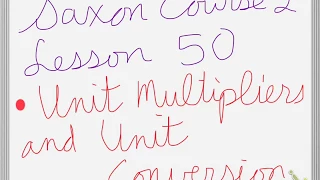 Saxon Course 2
Lesson 50
• Unit Multipliers
and Unit
Conversion